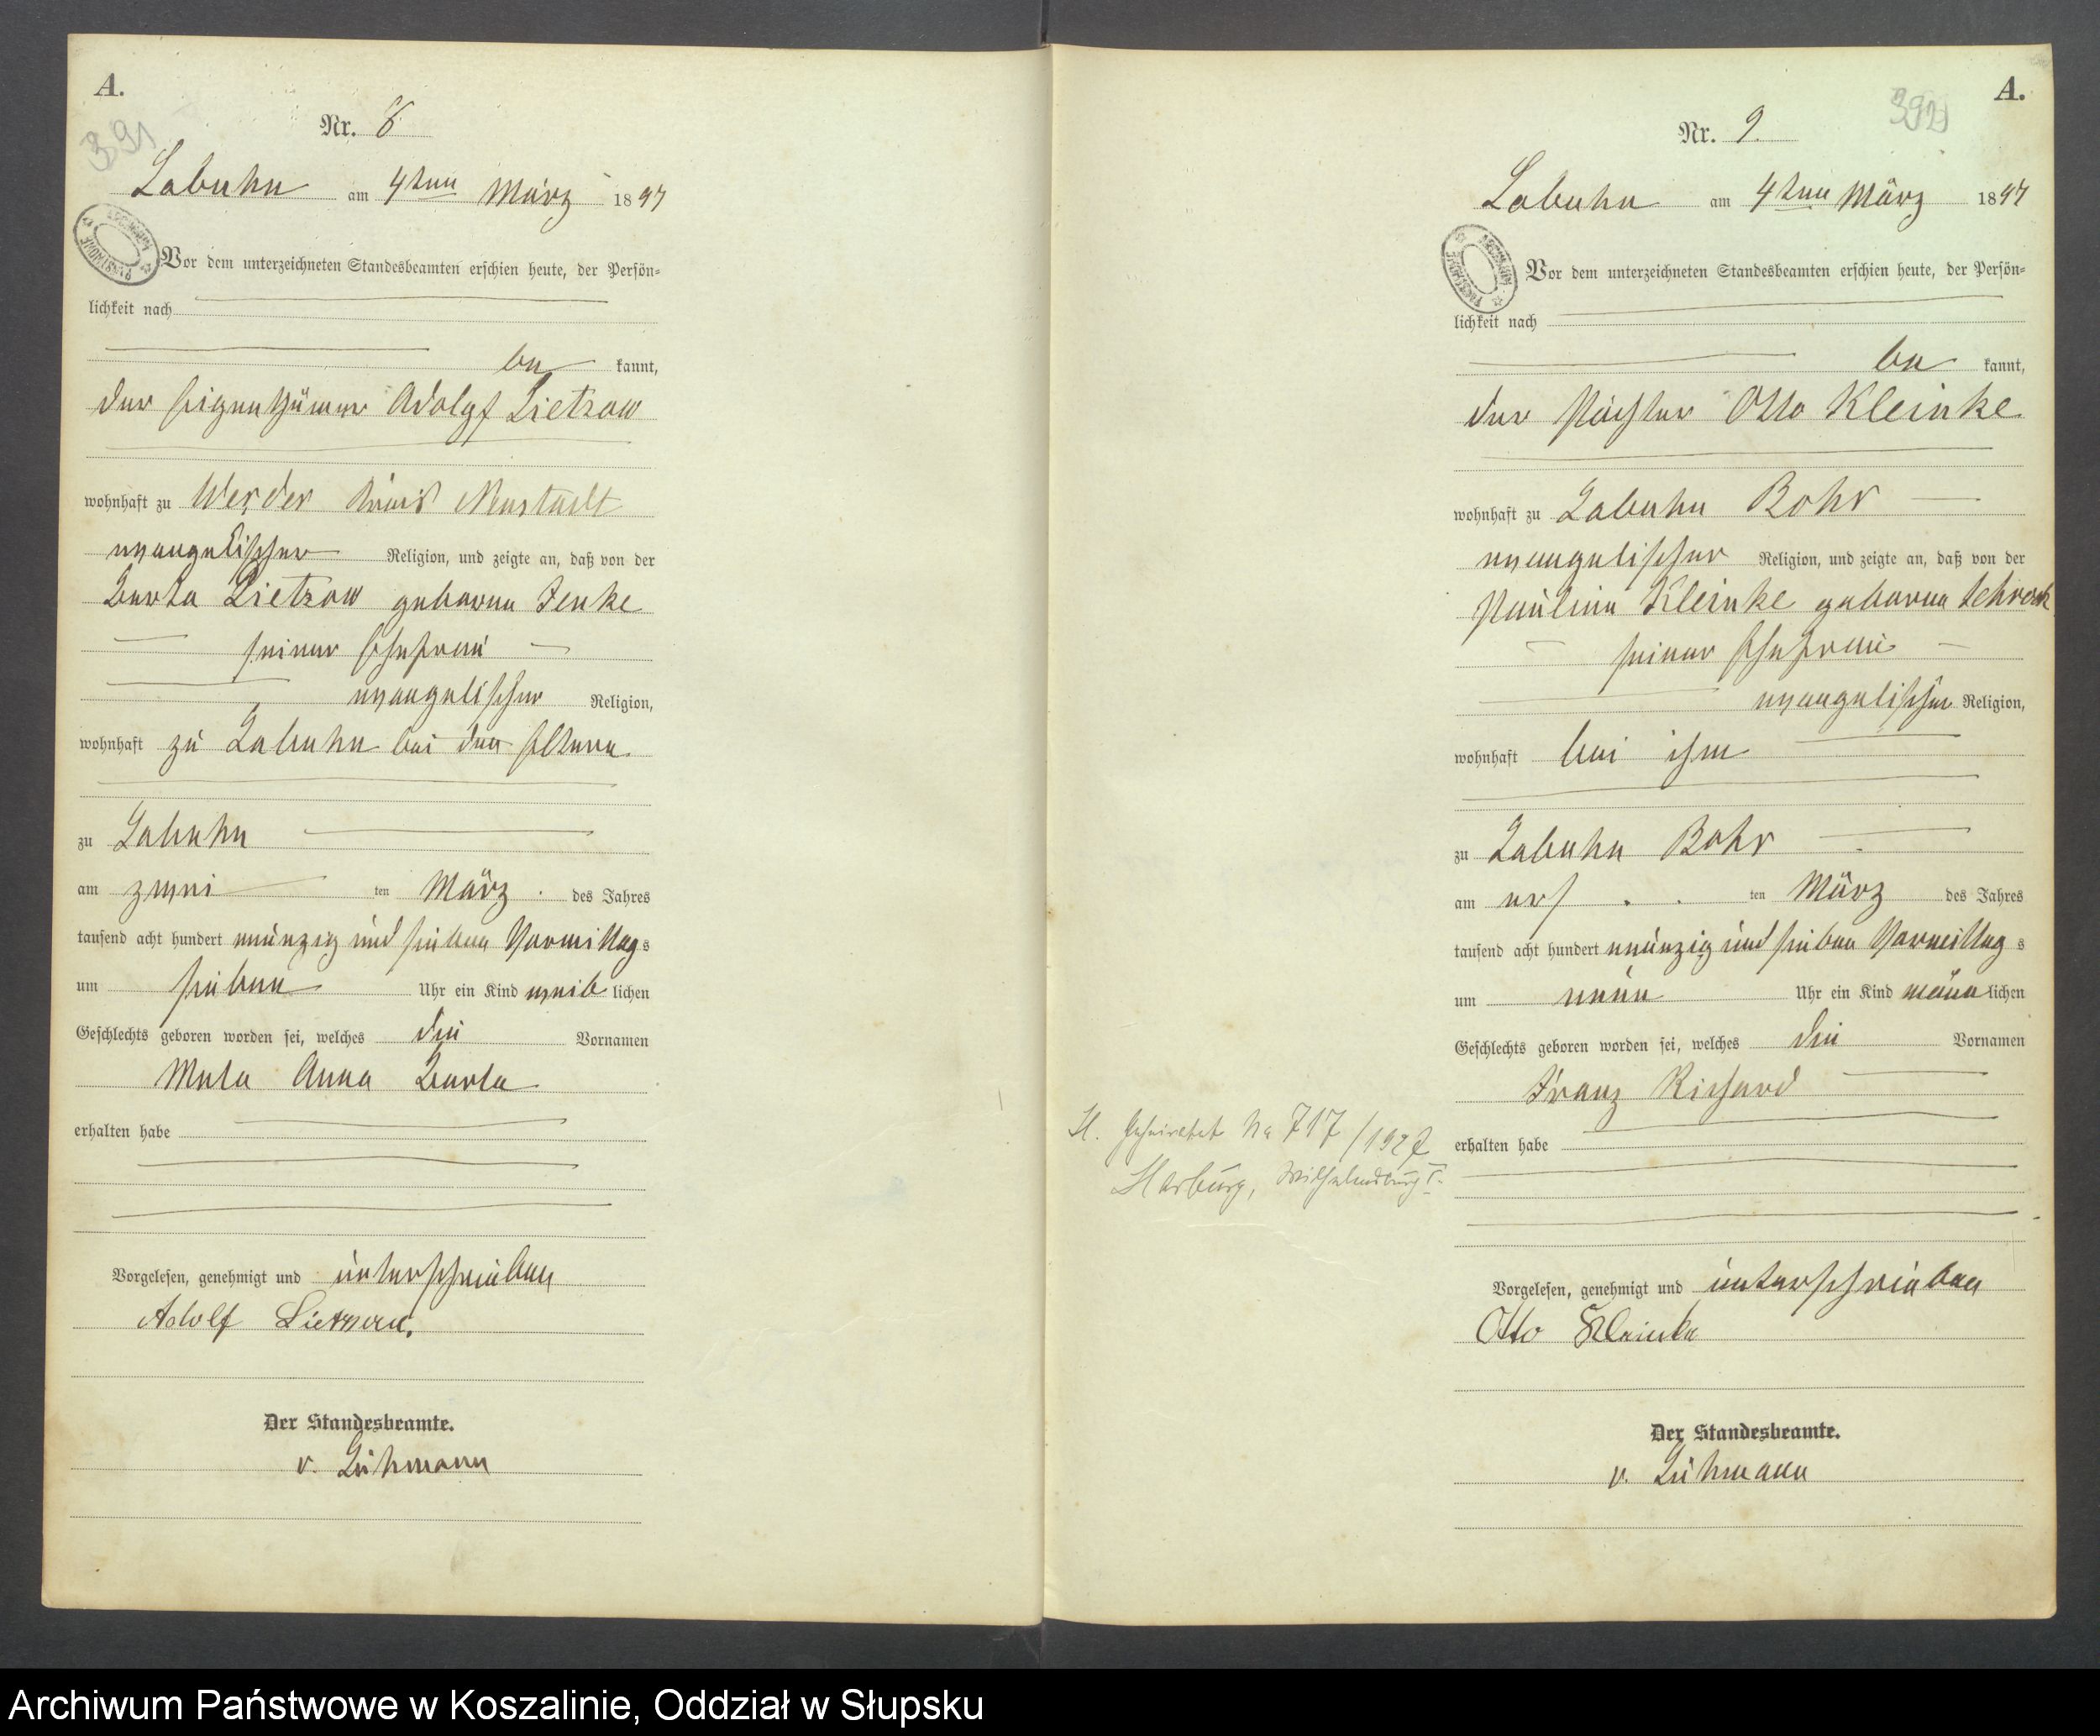 A.
391
Nr. 8
Labuhn am 4ten März 1897
Vor dem unterzeichneten Standesbeamten erschien heute, der Persön=
lichkeit nach
be kannt,
der Eigenthümer Adolf Lietzow
wohnhaft zu Werder Kreis Neustadt
evangelischer Religion, und zeigte an, daß von der
Berta Lietzow geborene Jenke
seiner Ehefrau
evangelischer Religion,
wohnhaft zu Labuhn bei den Eltern
zu Labuhn
am zwei ten März des Jahres
tausend acht hundert neunzig und sieben Vormittags
um sieben Uhr ein Kind weib lichen
Geschlechts geboren worden sei, welches die Vornamen
Meta Anna Berta
erhalten habe
Vorgelesen, genehmigt und unterschrieben
Adolf Lietzow.
Der Standesbeamte.
v. Lühmann
A.
392
Nr. 9.
Labuhn am 4ten März 1897
Vor dem unterzeichneten Standesbeamten erschien heute, der Persön=
lichkeit nach
be kannt,
der Pächter Otto Kleinke
wohnhaft zu Labuhn Bohr
evangelischer Religion, und zeigte an, daß von der
Pauline Kleinke geborene Schrock
seiner Ehefrau
evangelischer Religion,
wohnhaft bei ihm
zu Labuhn Bohr
am ers ten März des Jahres
tausend acht hundert neunzig und sieben Vormittag s
um neun Uhr ein Kind männlichen
Geschlechts geboren worden sei, welches die Vornamen
Franz Richard
H. Geheiratet Nr 717/1927
erhalten habe
Harburg, Wilhelmsburg I.
Vorgelesen, genehmigt und unterschrieben
Otto Kleinke
Der Standesbeamte.
v. Lühmann
Archiwum Państwowe w Koszalinie, Oddział w Słupsku